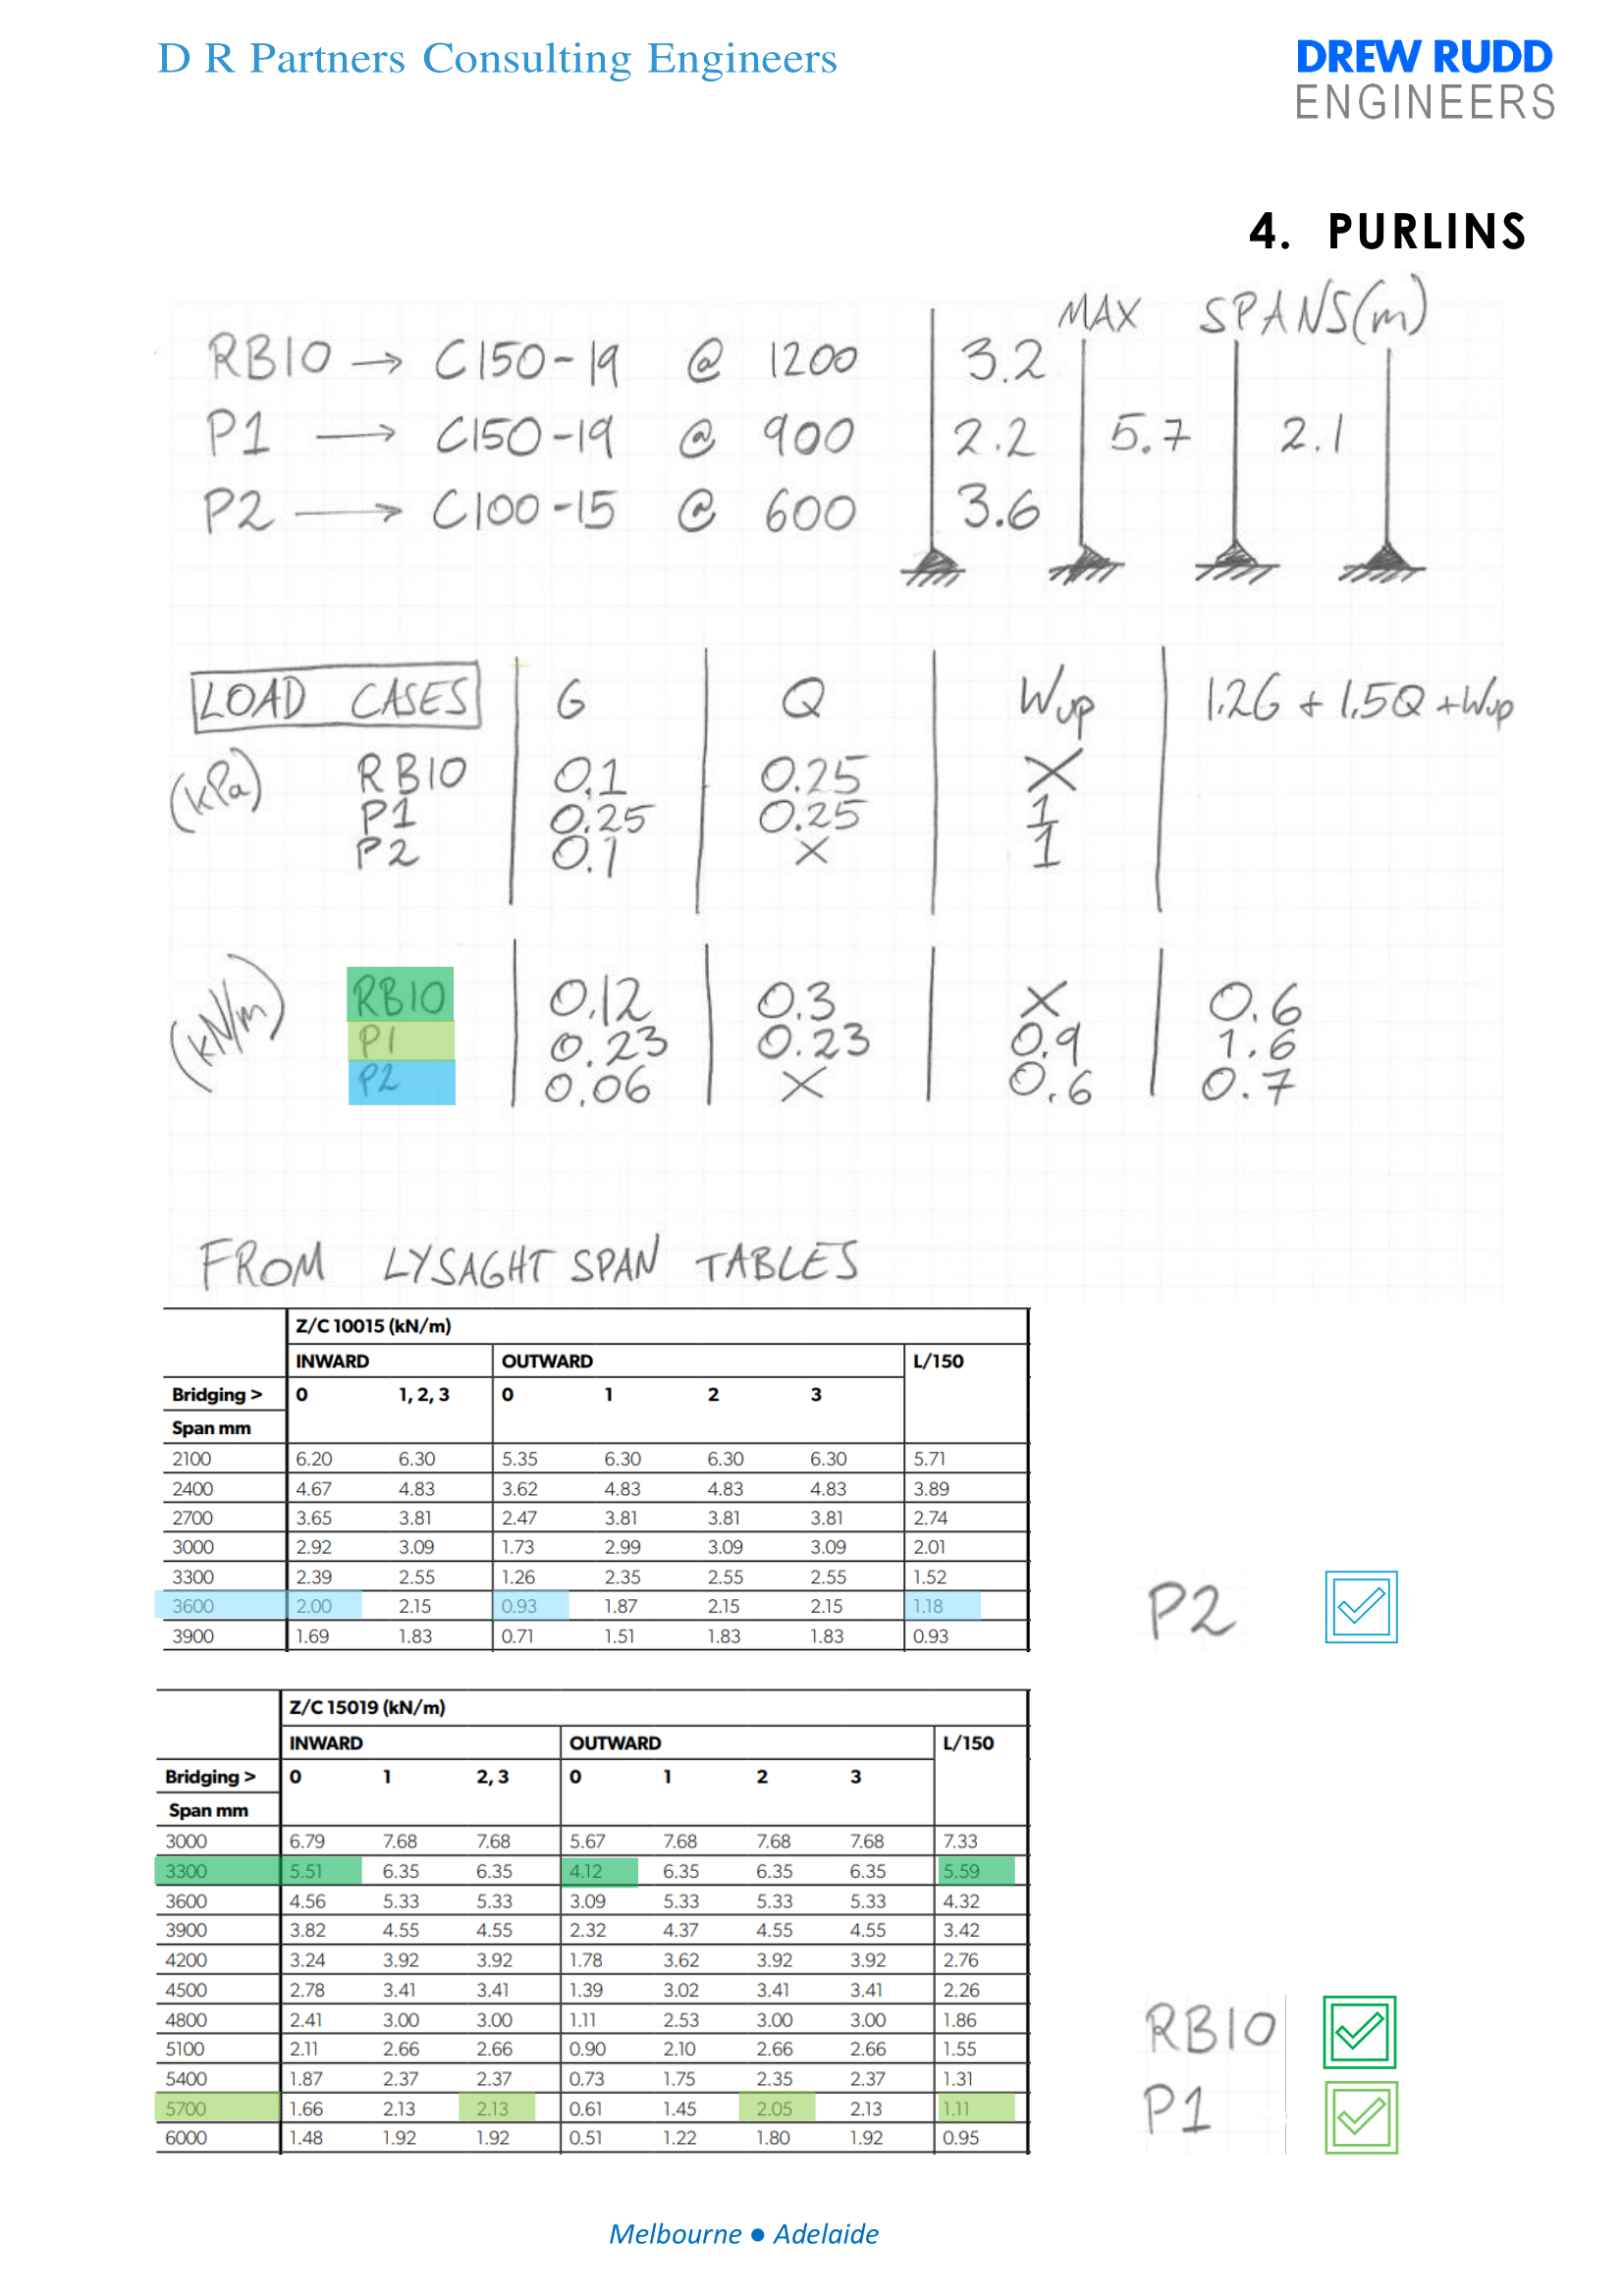 D R Partners Consulting Engineers
DREW RUDD
ENGINEERS
4. PURLINS
MAX SPANS(m)
RB10 → C150-19 @ 1200 3.2
P1 → C150-19 @ 900 2.2 5.7 2.1
P2 → C100-15 @ 600 3.6
LOAD CASES G Q Wup 1.2G + 1.5Q + Wup
(kPa) RB10 0.1 0.25 X
P1 0.25 0.25 1
P2 0.1 X 1
(kN/m) RB10 0.12 0.3 X 0.6
P1 0.23 0.23 0.9 1.6
P2 0.06 X 0.6 0.7
FROM LYSAGHT SPAN TABLES
Z/C 10015 (kN/m)
INWARD OUTWARD L/150
Bridging > 0 1, 2, 3 0 1 2 3
Span mm
2100 6.20 6.30 5.35 6.30 6.30 6.30 5.71
2400 4.67 4.83 3.62 4.83 4.83 4.83 3.89
2700 3.65 3.81 2.47 3.81 3.81 3.81 2.74
3000 2.92 3.09 1.73 2.99 3.09 3.09 2.01
3300 2.39 2.55 1.26 2.35 2.55 2.55 1.52
3600 2.00 2.15 0.93 1.87 2.15 2.15 1.18
P2
3900 1.69 1.83 0.71 1.51 1.83 1.83 0.93
Z/C 15019 (kN/m)
INWARD OUTWARD L/150
Bridging > 0 1 2, 3 0 1 2 3
Span mm
3000 6.79 7.68 7.68 5.67 7.68 7.68 7.68 7.33
3300 5.51 6.35 6.35 4.12 6.35 6.35 6.35 5.59
3600 4.56 5.33 5.33 3.09 5.33 5.33 5.33 4.32
3900 3.82 4.55 4.55 2.32 4.37 4.55 4.55 3.42
4200 3.24 3.92 3.92 1.78 3.62 3.92 3.92 2.76
4500 2.78 3.41 3.41 1.39 3.02 3.41 3.41 2.26
4800 2.41 3.00 3.00 1.11 2.53 3.00 3.00 1.86
RB10
5100 2.11 2.66 2.66 0.90 2.10 2.66 2.66 1.55
5400 1.87 2.37 2.37 0.73 1.75 2.35 2.37 1.31
5700 1.66 2.13 2.13 0.61 1.45 2.05 2.13 1.11
P1
6000 1.48 1.92 1.92 0.51 1.22 1.80 1.92 0.95
Melbourne ● Adelaide